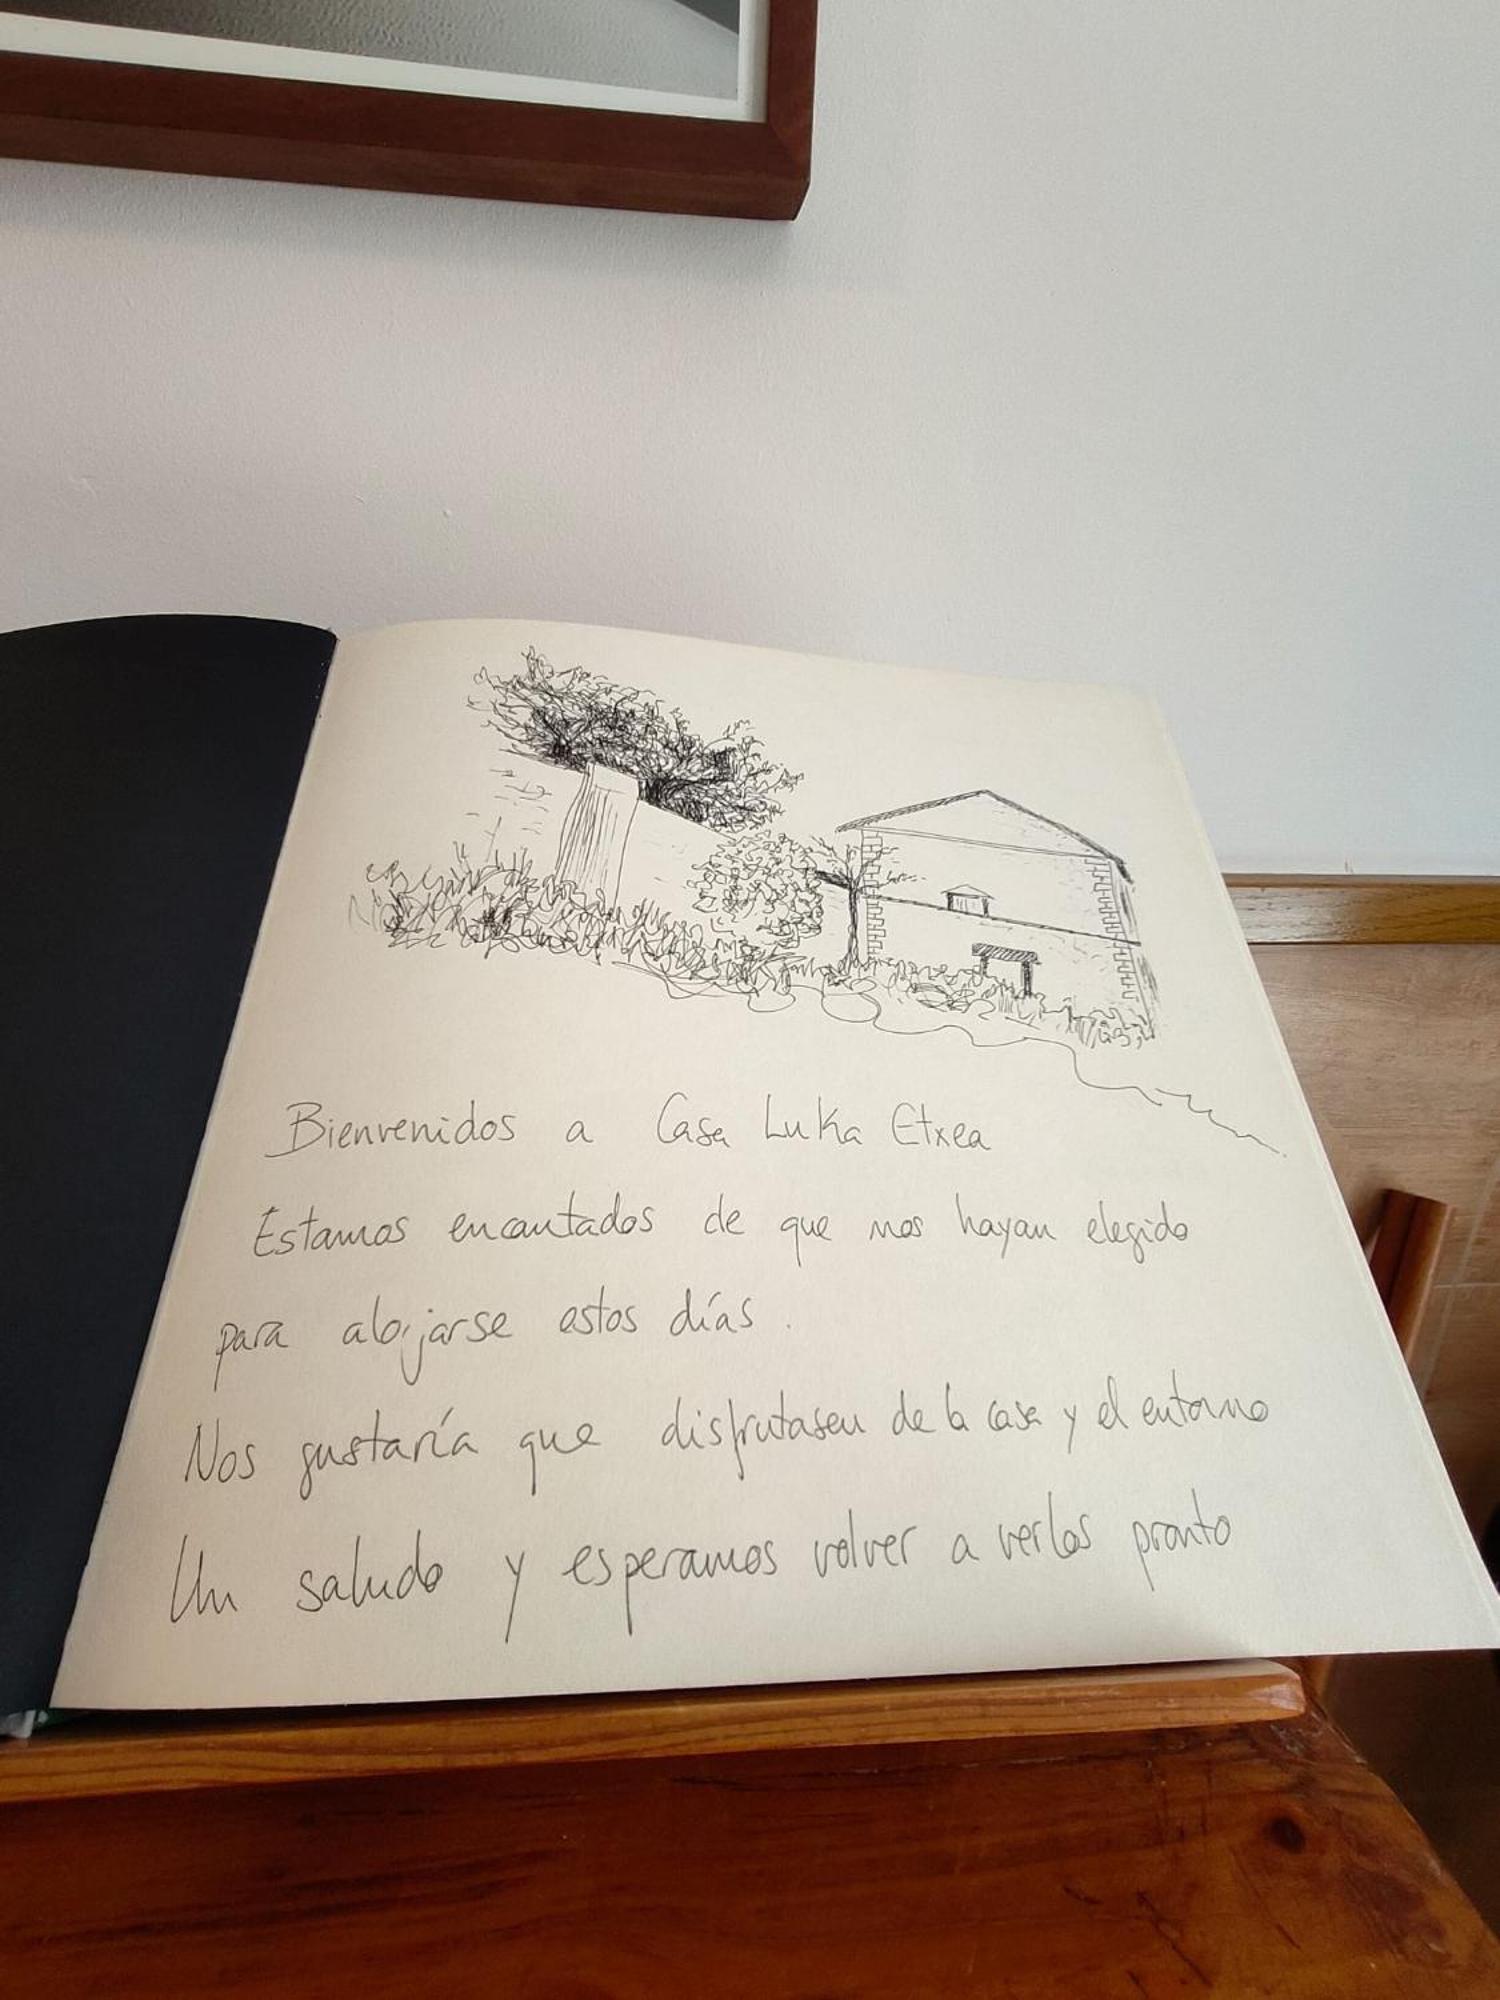 Bienvenidos a Casa Luka Etxea
Estamos encantados de que nos hayan elegido
para alojarse estos días.
Nos gustaría que disfrutasen de la casa y el entorno
Un saludo y esperamos volver a verlos pronto